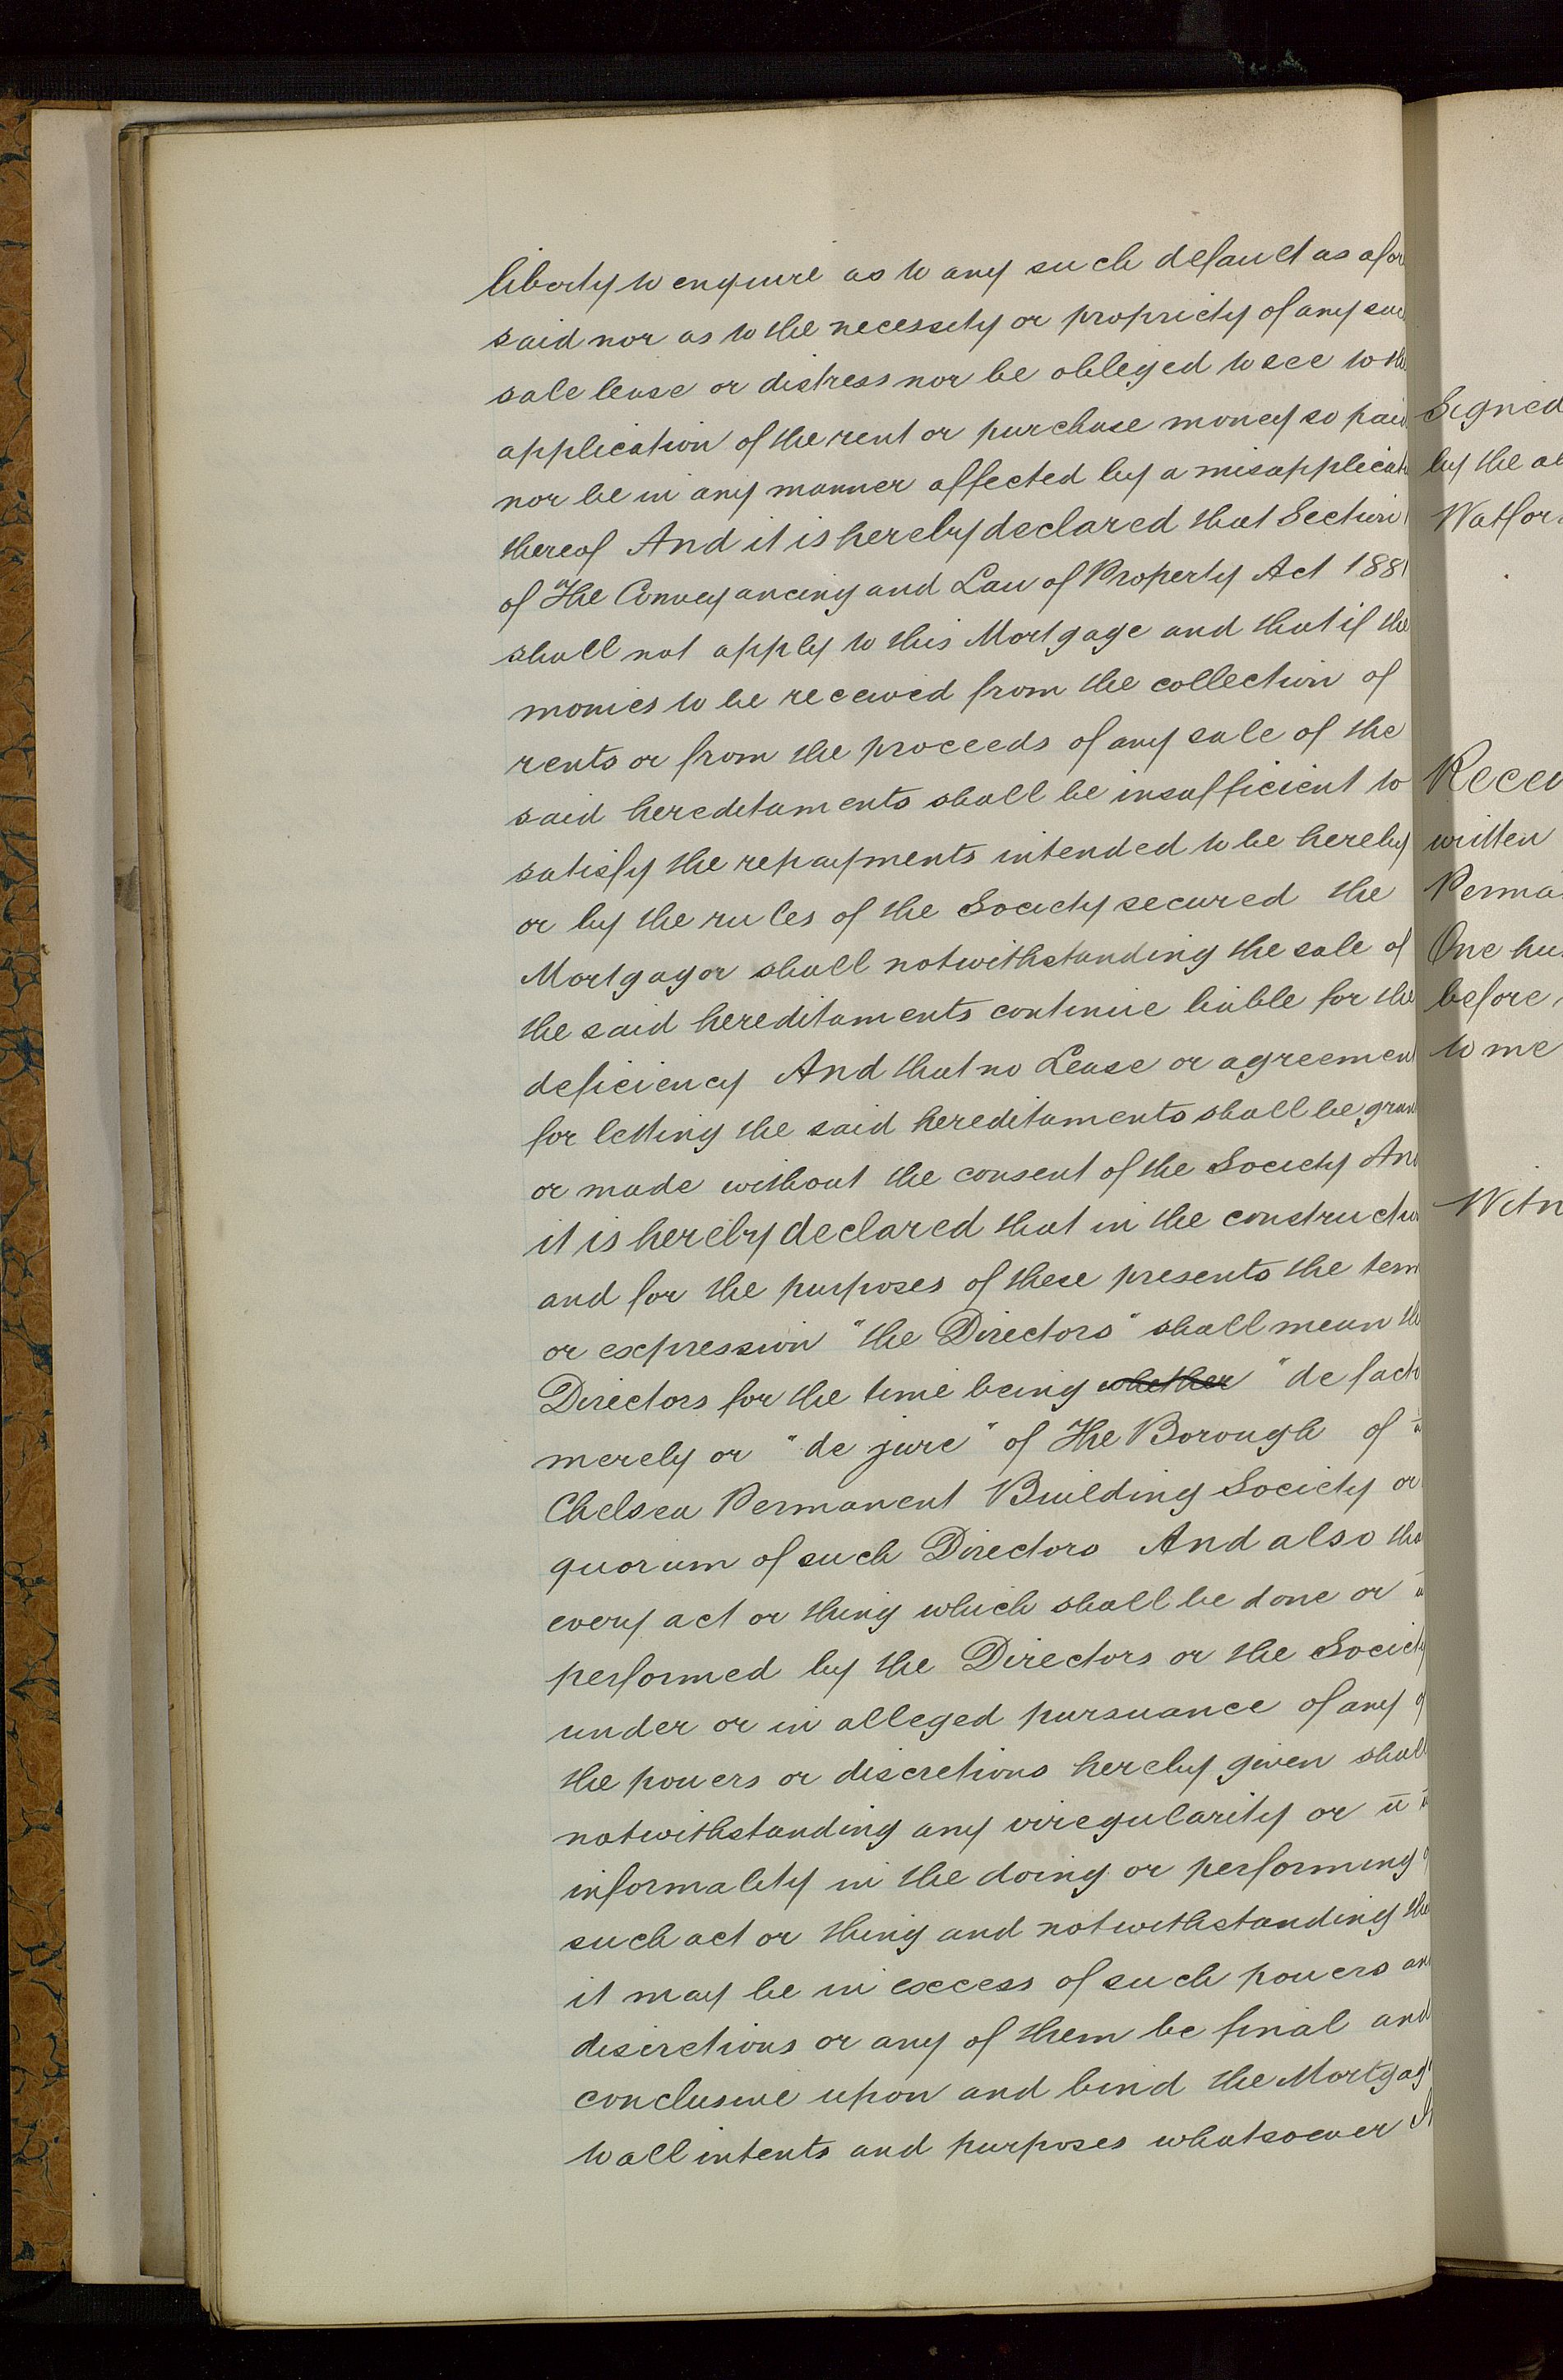 liberty to enquire as to any such default as afor
said nor as to the necessity or propriety of any suc
sale lease or distress nor be obliged to see to the
application of the rent or purchase money so paid
nor be in any manner affected by a misapplicati
thereof And it is hereby declared that Section
of The Conveyancing and Law of Property Act 1881
shall not apply to this Mortgage and that if the
monies to be received from the collection of
rents or from the proceeds of any sale of the
said hereditaments shall be insufficient to
satisfy the repayments intended to be hereby
or by the rules of the Society secured the
Mortgagor shall notwithstanding the sale of
the said hereditaments continue liable for the
deficiency And that no Lease or agreement
for letting the said hereditaments shall be gran
or made without the consent of the Society And
it is hereby declared that in the constructio
and for the purposes of these presents the term
or expression "the Directors" shall mean the
Directors for the time being whether "de facto
merely or "de jure" of The Borough of
Chelsea Permanent Building Society or
quorum of such Directors And also tha
every act or thing which shall be done or
performed by the Directors or the Society
under or in alleged pursuance of any of
the powers or discretions hereby given shall
notwithstanding any irregularity or
informality in the doing or performing
such act or thing and notwithstanding tha
it may be in excess of such powers an
discretions or any of them be final and
conclusive upon and bind the Mortgag
to all intents and purposes whatsoever
Signed
by the ab
Watfor
Recei
written
Perma
One hu
before
to me
Witn